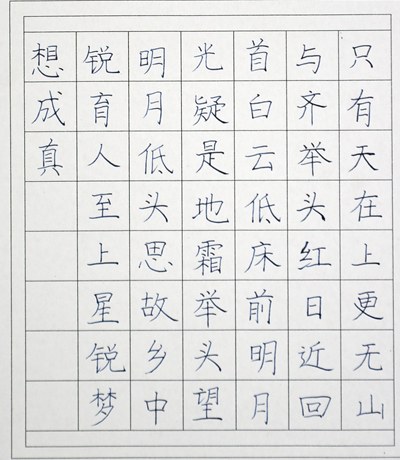 只有天在上更无山
与齐举头红日近回
首白云低床前明月
光疑是地霜举头望
明月低头思故乡中
锐育人至上星锐梦
想成真